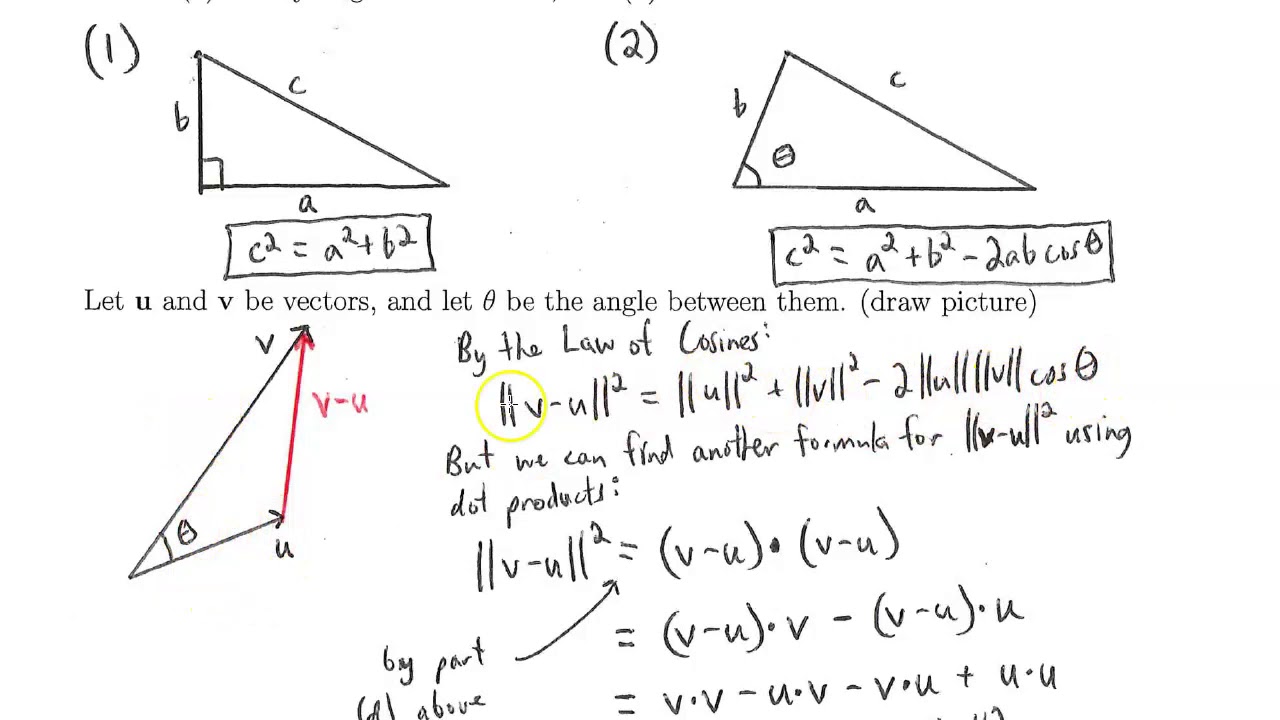 (1)
(2)
b
c
a
b
c
θ
a
c² = a² + b²
c² = a² + b² - 2ab cosθ
Let u and v be vectors, and let θ be the angle between them. (draw picture)
v
v-u
θ
u
By the Law of Cosines:
||v-u||² = ||u||² + ||v||² - 2||u|| ||v|| cosθ
But we can find another formula for ||v-u||² using
dot products:
||v-u||² = (v-u)•(v-u)
= (v-u)•v - (v-u)•u
by part
= v•v - u•v - v•u + u•u
above